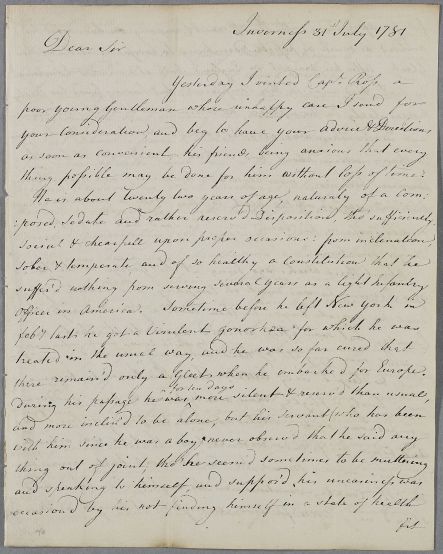 Inverness 31st July 1781
Dear Sir
Yesterday I visited Capt. Ross a
poor young Gentleman whose unhappy case I send for
your Consideration, and beg to have your advice & Directions
as soon as convenient his friends being anxious that every
thing possible may be done for him without loss of time.
He is about twenty two years of age, naturaly of a com=
:posed, sedate and rather reserv'd Disposition, tho sufficiently
social & chearfull upon proper occasions: from inclination,
sober & temperate, and of so healthy a Constitution that he
suffer'd nothing from serving several years as a light infantry
officer in America. Sometime before he left New York in
feby last he got a virulent Gonorhea for which he was
treated in the usual way, and he was so far cured that
there remain'd only a Gleet, when he embarked for Europe.
During his passage he was for ten days more silent & reserv'd than usual,
and more inclin'd to be alone, but his servant (who has been
with him since he was a boy) never observ'd that he said any
thing out of joint, tho he seem'd sometimes to be muttering
and speaking to himself, and suppos'd his uneasiness was
occasion'd by his not finding himself in a state of health
fit